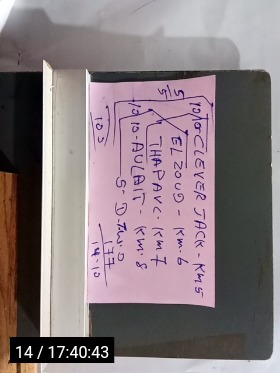 10/10 CLEVER JACK - KM5
5/5
ELZOUD - KM.6
THAPAVC. KM 7
10 10 - AULAIT - KM.8
5 - D.
103
177
14.10
14 / 17:40:43